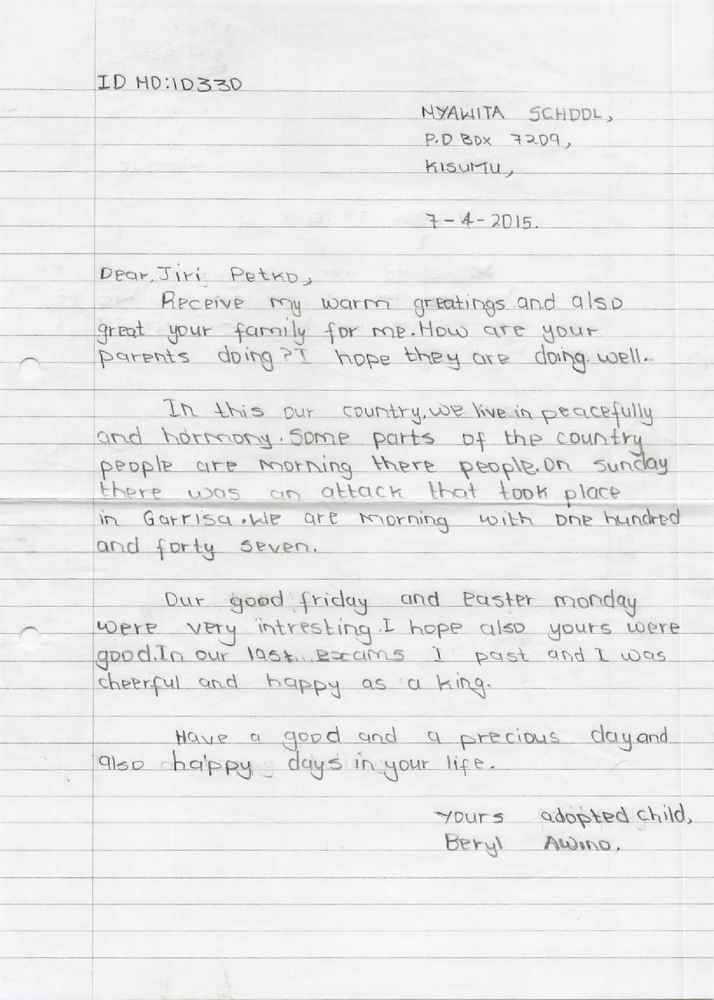 ID NO:ID330
NYAWITA SCHOOL,
P.O BOX 7209,
KISUMU,
7-4-2015.
Dear, Jiri Petko,
Receive my warm greatings and also
great your family for me. How are your
parents doing? I hope they are doing well.
In this our country, we live in peacefully
and hormony. Some parts of the country
people are morning there people. On sunday
there was an attack that took place
in Garrisa. We are morning with one hundred
and forty seven.
Our good friday and easter monday
were very intresting. I hope also yours were
good. In our last exams I past and I was
cheerful and happy as a king.
Have a good and a precious day and
also happy days in your life.
yours adopted child,
Beryl Awino.